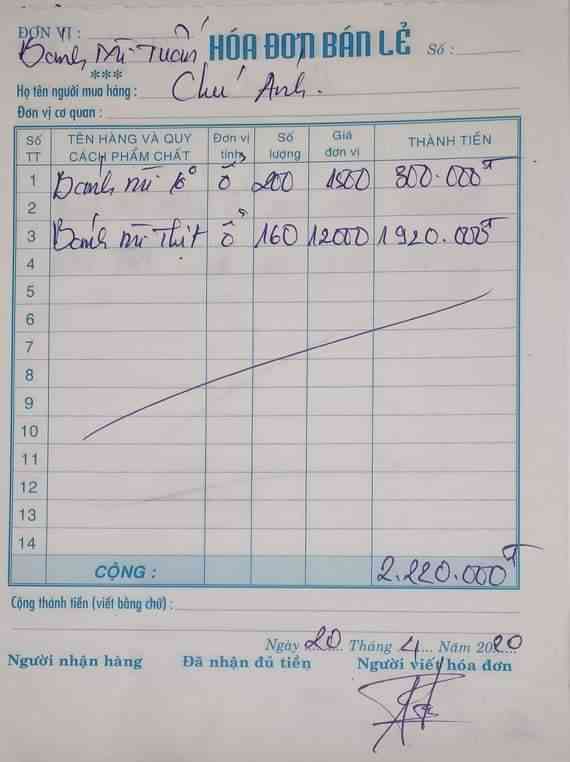 ĐƠN VỊ : Bánh mì Tuấn
HÓA ĐƠN BÁN LẺ
Số :
***
Họ tên người mua hàng : Chú Ánh.
Đơn vị cơ quan :
Số TT TÊN HÀNG VÀ QUY CÁCH PHẨM CHẤT Đơn vị tính Số lượng Giá đơn vị THÀNH TIỀN
1 Bánh mì ổ 200 1500 300.000đ
2
3 Bánh mì Thịt ổ 160 12000 1920.000đ
4
5
6
7
8
9
10
11
12
13
14
CỘNG : 2.220.000đ
Cộng thành tiền (viết bằng chữ) :
Ngày 20 Tháng 4 Năm 2020
Người nhận hàng Đã nhận đủ tiền Người viết hóa đơn